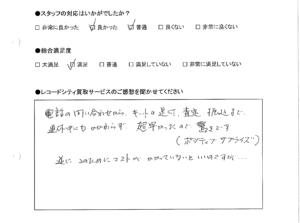 ●スタッフの対応はいかがでしたか？
□非常に良かった ☑良かった ☑普通 □良くない □非常に良くない
●総合満足度
□大満足 ☑満足 □普通 □満足していない □非常に満足していない
●レコードシティ買取サービスのご感想を聞かせてください
電話の問い合わせから、キットの送付、査定、振込まで、
連休中にもかかわらず、超早かったので驚きです
(ポジティブサプライズ)
逆に このためにコストが かかっていないといいのですが…